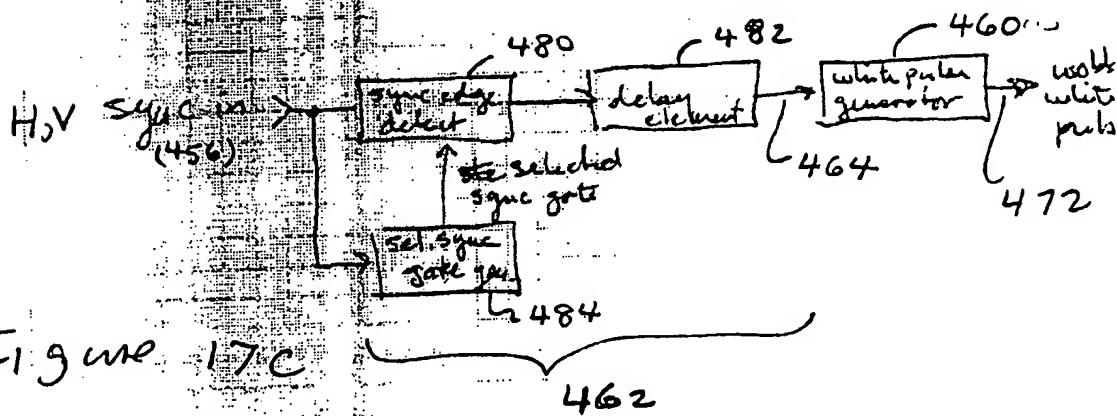 480
482
460
H,V sync in
(456)
sync edge
detect
delay
element
white pulse
generator
wobb
white
puls
464
472
selected
sync gate
sel. sync
gate gen.
484
Figure 17C
462